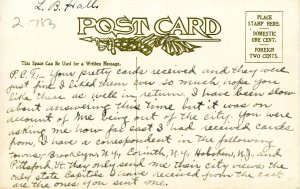 L. B. Halls
POST CARD
PLACE
STAMP HERE.
DOMESTIC
ONE CENT.
FOREIGN
TWO CENTS.
This Space Can Be Used for a Written Message.
Your pretty cards received and they were
just fine I liked them ever so much, hope you
like these as well in return. I have been slow
about answering this time but it was on
account of me being out of the city. You were
asking me how far east I had received cards
from, I have a correspondent in the following
towns, Brooklyn N.Y. Corinth, N.Y. Hoboken N.J. and
Pittsford Vt. they only send me their city views the
only state Capitols I have received from the east
are the ones you sent me.